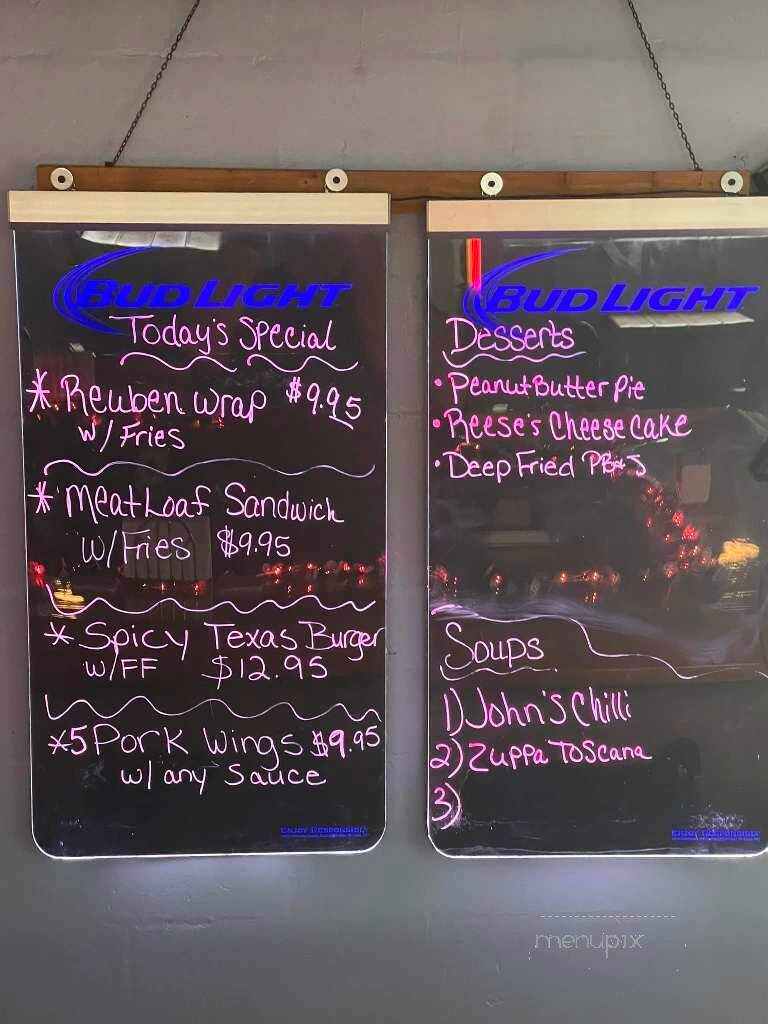 BUD LIGHT
Today's Special
* Reuben wrap $9.95
w/ Fries
* Meatloaf Sandwich
w/Fries $9.95
* Spicy Texas Burger
w/FF $12.95
*5 Pork Wings $9.95
w/ any Sauce
ENJOY RESPONSIBLY
BUD LIGHT
Desserts
• Peanut Butter Pie
• Reese's Cheese cake
• Deep Fried PB&J
Soups
1) John's Chilli
2) Zuppa Toscana
3)
ENJOY RESPONSIBLY
menupix